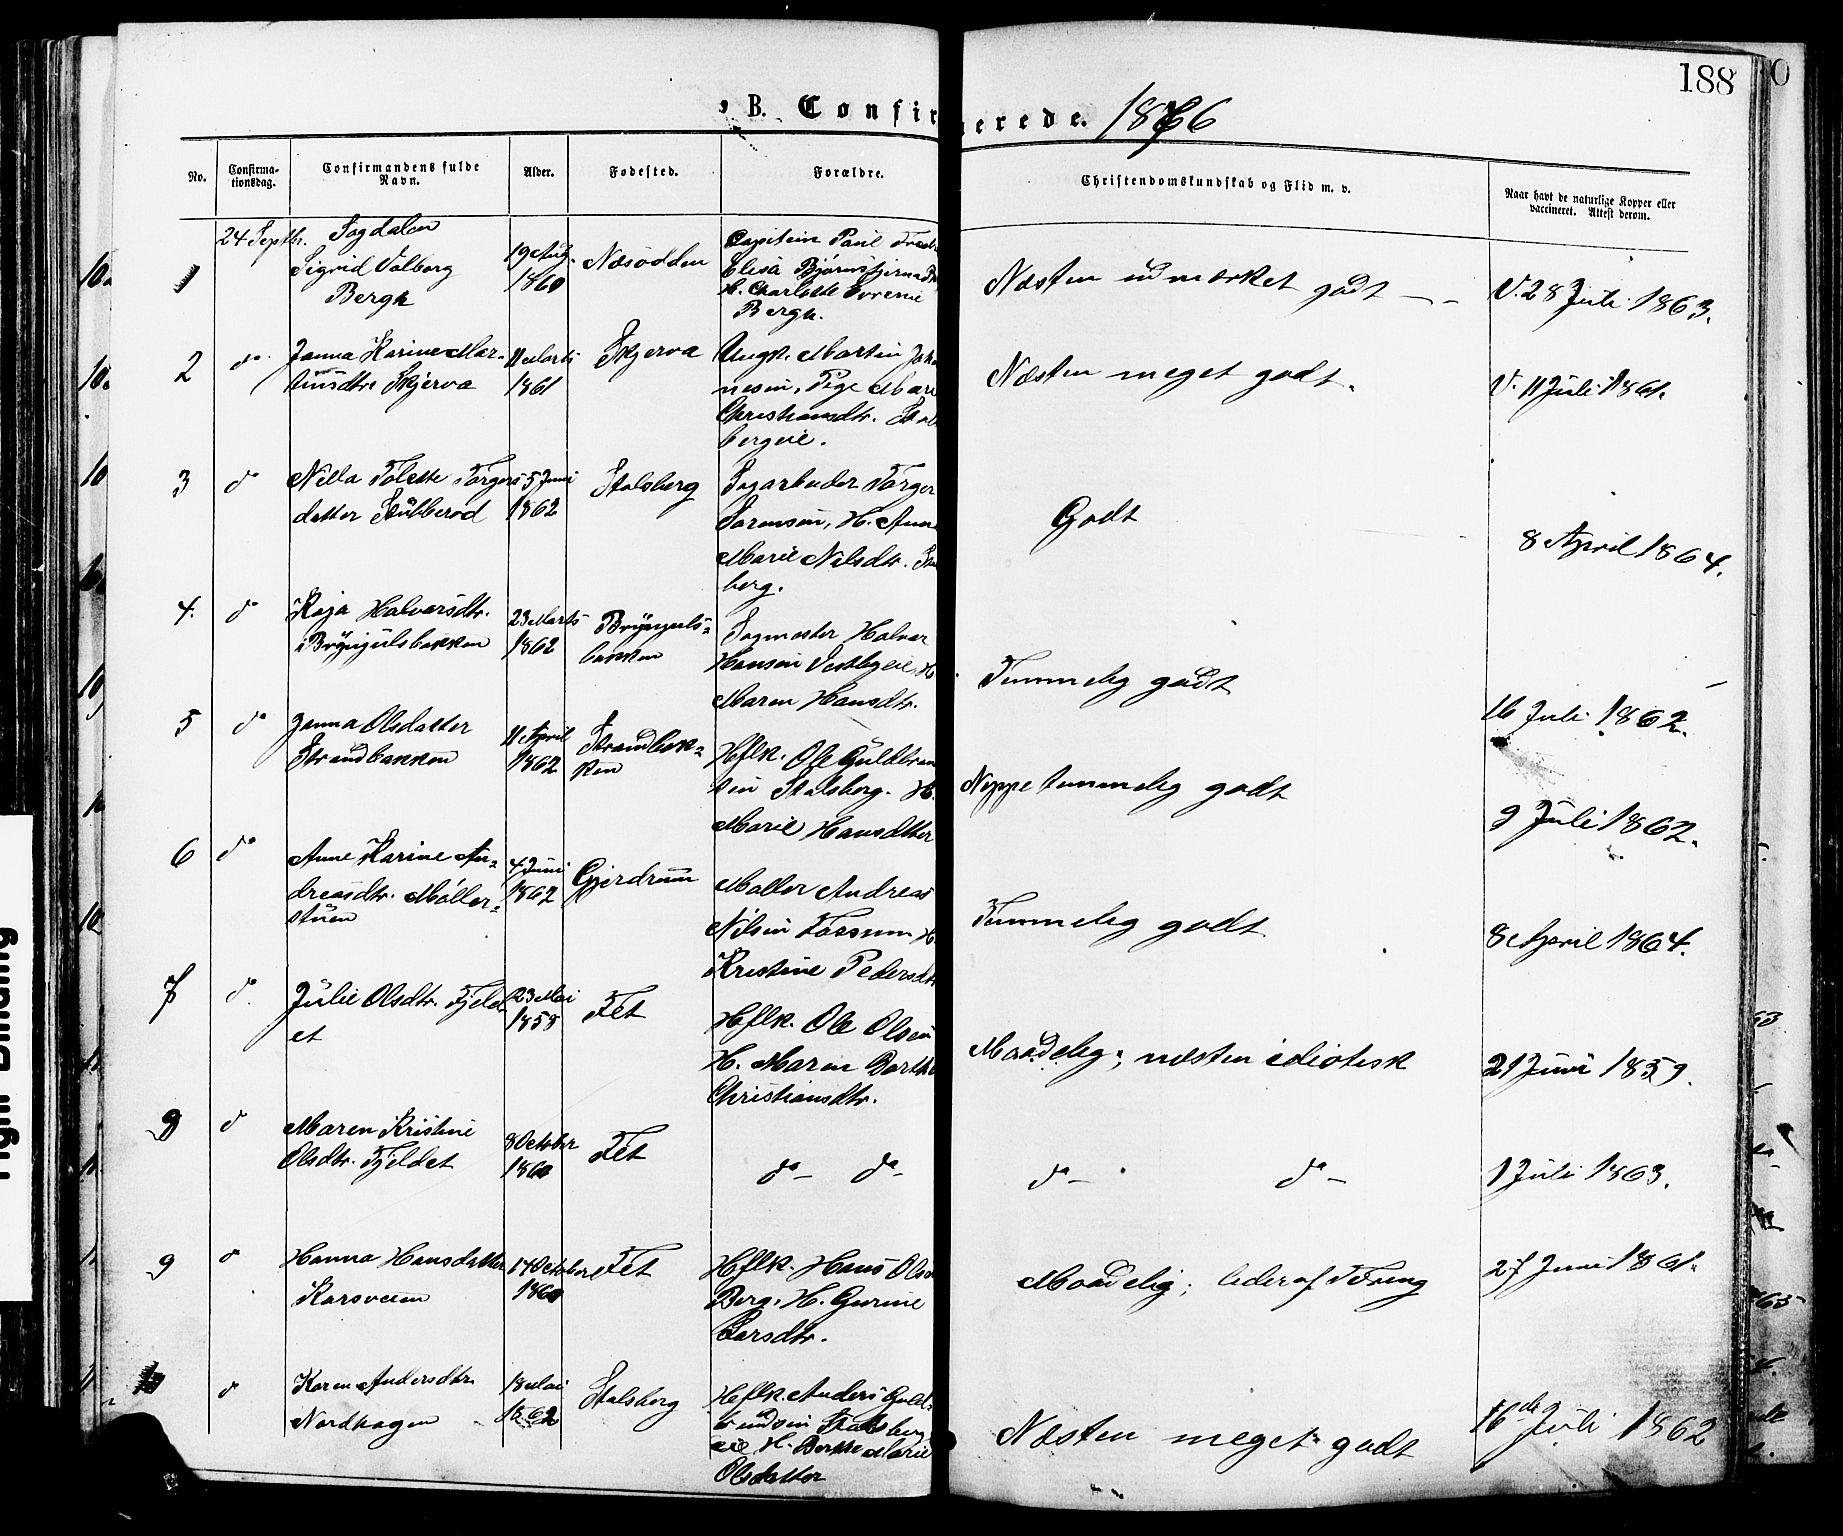 188
B. Confir
merede. 1876
No.
Confirma-
tionsdag.
Confirmandens fulde
Navn.
Alder.
Fødested.
Forældre.
Christendomskundskab og Flid m. v.
Naar havt de naturlige Kopper eller
vaccineret. Attest derom.
1
24 Septbr.
Sagdalen
Sigrid Valborg
Bergh
19 Aug.
1860
Næsodden
Capitein Paul
Elisa
H. Charlotte
Bergh.
Næsten udmærket godt
V. 28 Juli 1863.
2
do
Janna Karine Mar-
tinsdtr Skjerva
11 Marts
1861
Skjerva
Ungk. Martin Joha
nesen, Pige Mari
Christiansdtr. Stals
bergeie.
Næsten meget godt.
V. 11 Juli 1861.
3
do
Nilla Tolette Torgers
datter Stubberød
5 Juni
1862
Stalsberg
Sagarbeider Torger
Sørensen, H. Anne
Marie Nilsdtr.
berg.
Godt
8 April 1864.
4.
do
Kaja Halvorsdtr.
Brynjulsbakken
23 Marts
1862
Brynjuls-
bakken
Sagmester Halvor
Hansen Vestbyeie, H
Maren Hansdtr.
Temmelig godt
16 Juli 1862.
5
do
Janna Olsdatter
Strandbakken
11 April
1862
Strandbak-
ken
Hflk. Ole Guldbran
sen Stalsberg. H.
Marie Hansdtter
Neppe temmelig godt
9 Juli 1862.
6
do
Anne Karine An-
dreasdtr. Møller-
stuen
4 Juni
1862
Gjerdrum
Møller Andreas
Nilsen Fossum H
Kristine Pedersdtr
Temmelig godt
8 April 1864.
7
do
Julie Olsdtr. Fjeld-
et
23 Mai
1858
Fet
Hflk. Ole Olsen
H. Maren Barth
Christiansdtr.
Maadelig; næsten idiotisk
21 Juni 1859.
8
do
Maren Kristine
Olsdtr. Fjeldet
8 October
1860
Fet
do – do –
do – do –
1 Juli 1863.
9
do
Hanna Hansdatter
Karsveen
14 October
1860
Fet
Hflk. Hans Olsen
Berg, H. Gurine
Larsdtr.
Maadelig; lider af Tæring
27 Juni 1861.
10
do
Karen Andersdtr.
Nordhagen
18 Mai
1862
Stalsberg
Hflk. Anders Guld-
brandsen Stalsberg
eie H. Berthe Marie
Olsdatter
Næsten meget godt
16de Juli 1862